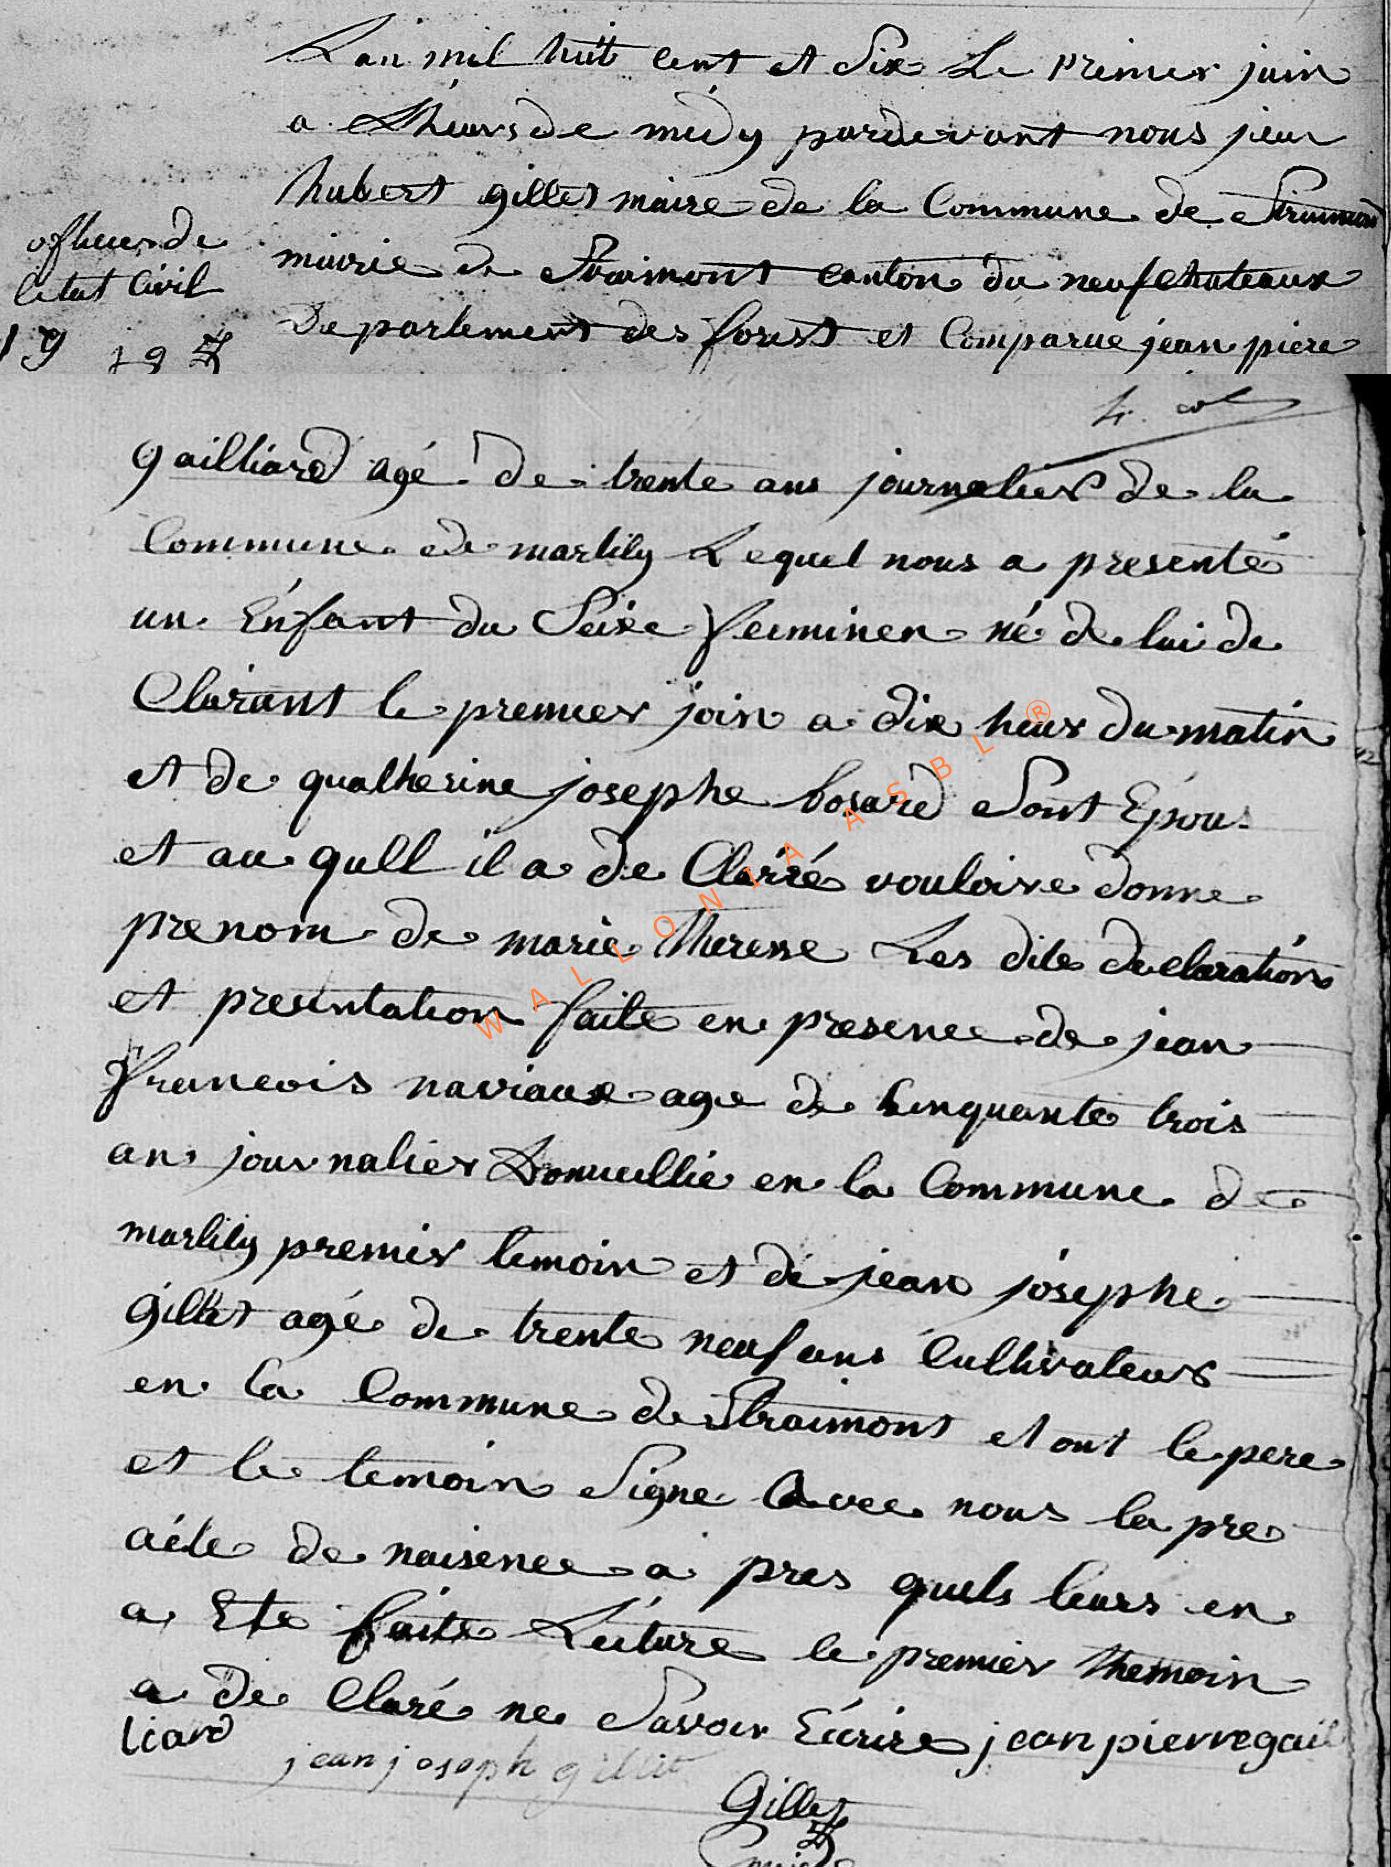 Lan mil huit cent et Six Le primier juin
a Lheurs de midy pardevant nous jean
hubert gillet maire de la Commune de Straimont
officier de
letat Civil
mairie de Straimont canton du neufchateaux
Departement des forest et Comparue jean piere
gailliard agé de trente ans journalier de la
Commune de martily Lequel nous a presenté
un Enfant du Seixe feminen né de lui de
Clarant le premier join a dix heur du matin
et de quatherine josephe bosard Sont Epou.
et au qull il a de Clarré vouloire donne
prenom de marie Theresse Les dite declaration
et presentation faite en presence de jean
francois naviaux age de Cinquante trois
an journalier Domicillié en la Commune de
martily premir temoin et de jean josephe
gillet agé de trente neuf ans Cultivateur
en la Commune de Straimont et ont le pere
et le temoin Signe Avec nous la pre
acte de naisence a pres quels leurs en
a Ete faite Lecture le premier themoin
a de Claré ne Savoir Ecrire jean pierre gail
liard
jean joseph gillet
Gillet
WALLONIA ASBL ®